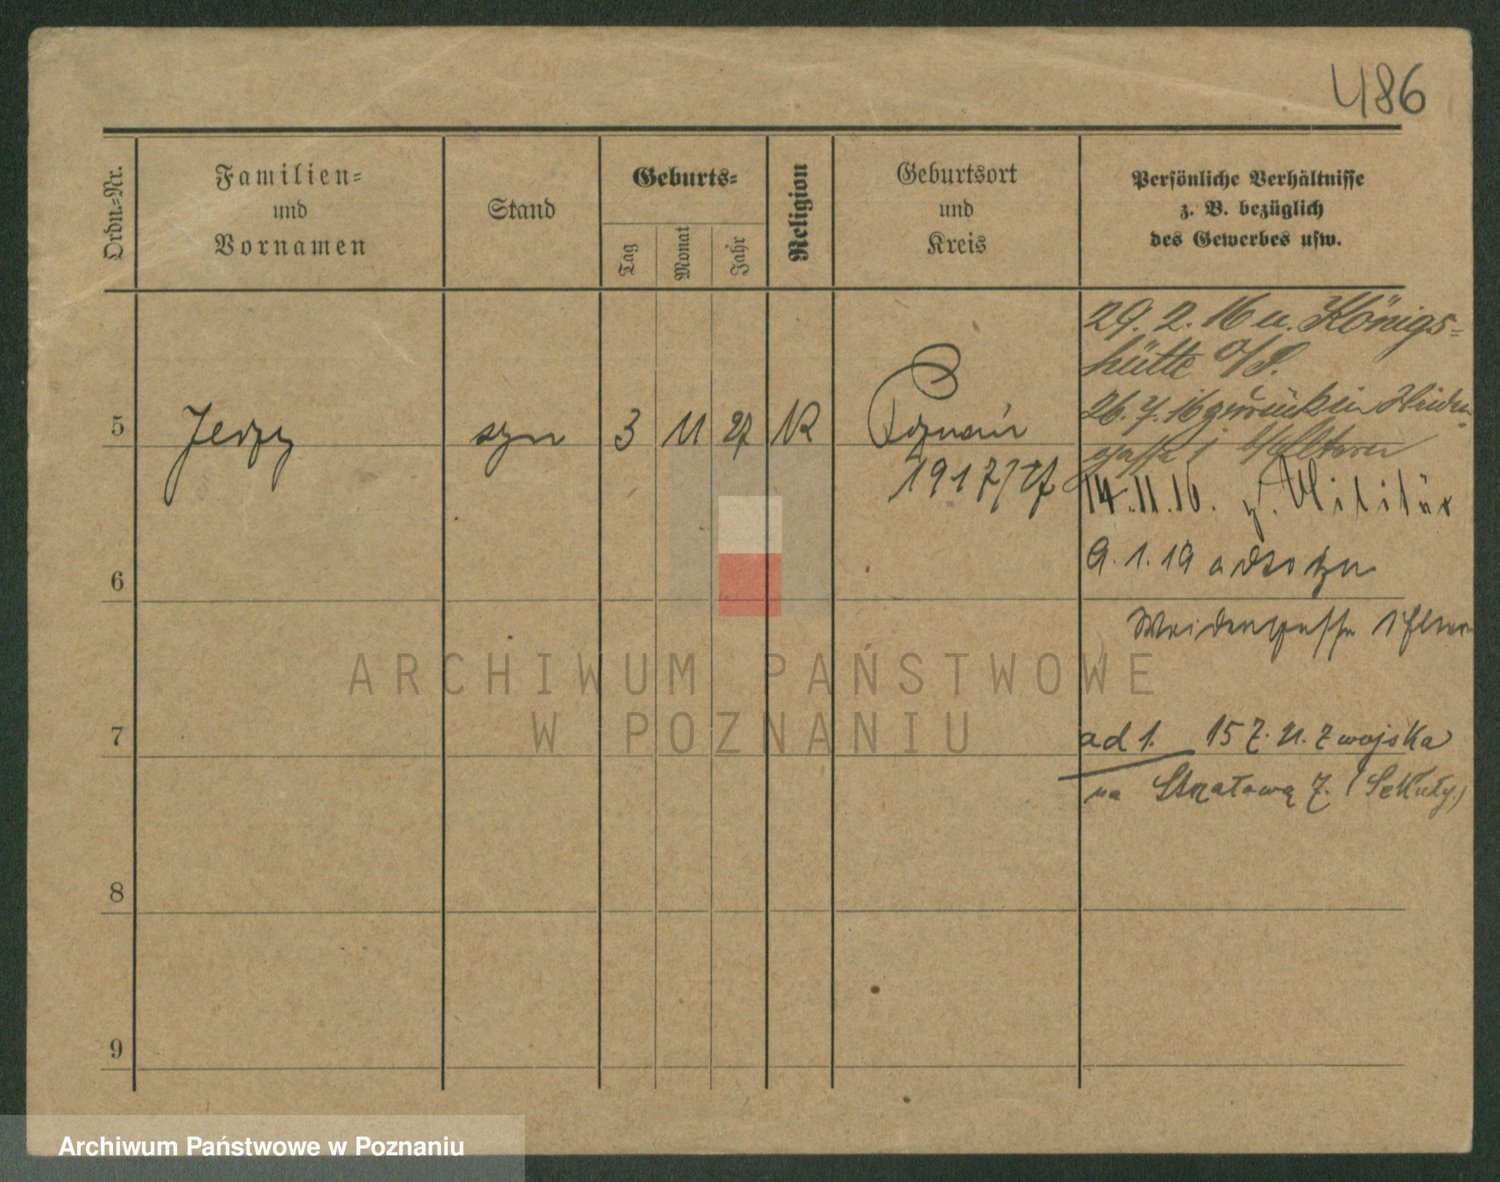 486
Ordn.-Nr.
Familien-
und
Vornamen
Stand
Geburts-
Tag
Monat
Jahr
Religion
Geburtsort
und
Kreis
Persönliche Verhältnisse
z. B. bezüglich
des Gewerbes usw.
29. 2. 16 u. Königs-
hütte O/S.
26. 7. 16 zurück in Weiden-
gasse Eltern
5 Jerzy syn 3 11 27 R Poznań
1917/27
14. 11. 16. z. Militär
9. 1. 19
6
Weidengasse Eltern
ARCHIWUM PAŃSTWOWE
W POZNANIU
7
ad 1. 15 7. 21. z wojska
na Strzałową 7. (Sekuły.)
8
9
Archiwum Państwowe w Poznaniu